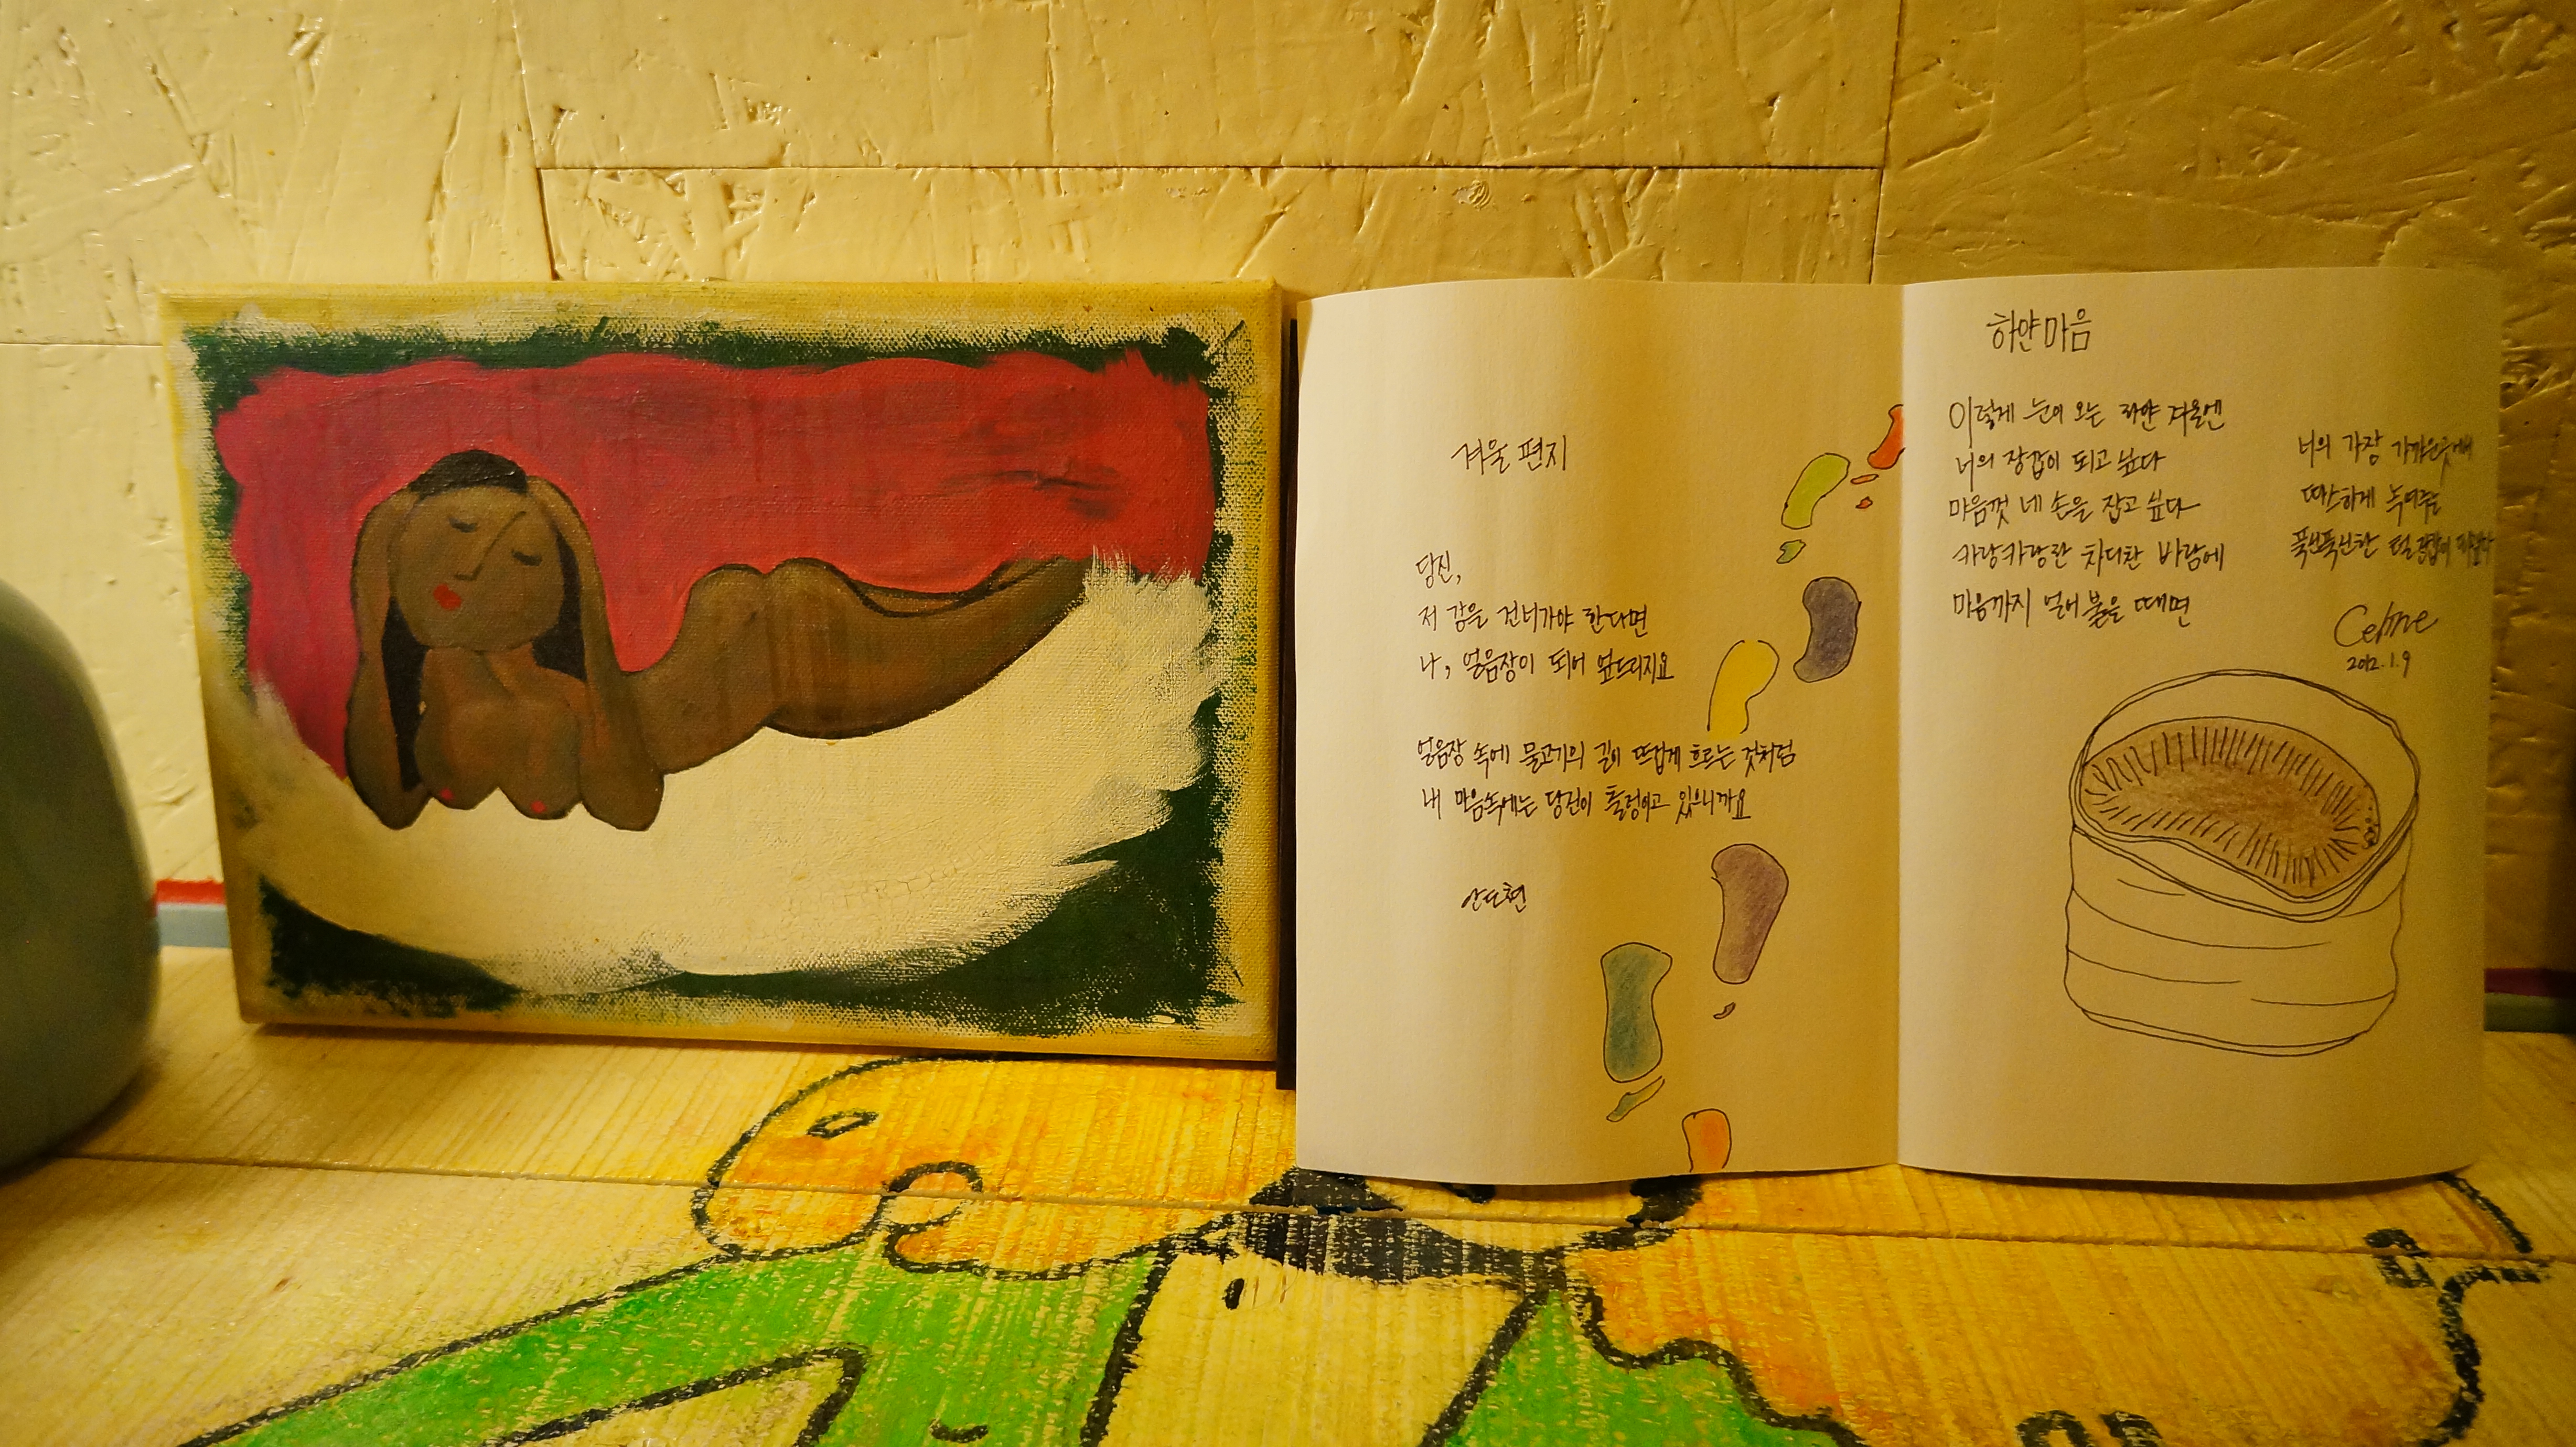 겨울 편지
당신,
저 강을 건너가야 한다면
나, 얼음장이 되어 엎드리지요
얼음장 속에 물고기의 길이 뜨겁게 흐르는 것처럼
내 마음속에는 당신이 출렁이고 있으니까요
안도현
하얀 마음
이렇게 눈이 오는 하얀 겨울엔
너의 장갑이 되고 싶다
마음껏 네 손을 잡고 싶다
카랑카랑한 차디찬 바람에
마음까지 얼어 붙을 때면
너의 가장 가까운곳에서
따스하게 녹여주는
푹신푹신한 털장갑이 되고싶다
Celine
2012.1.9